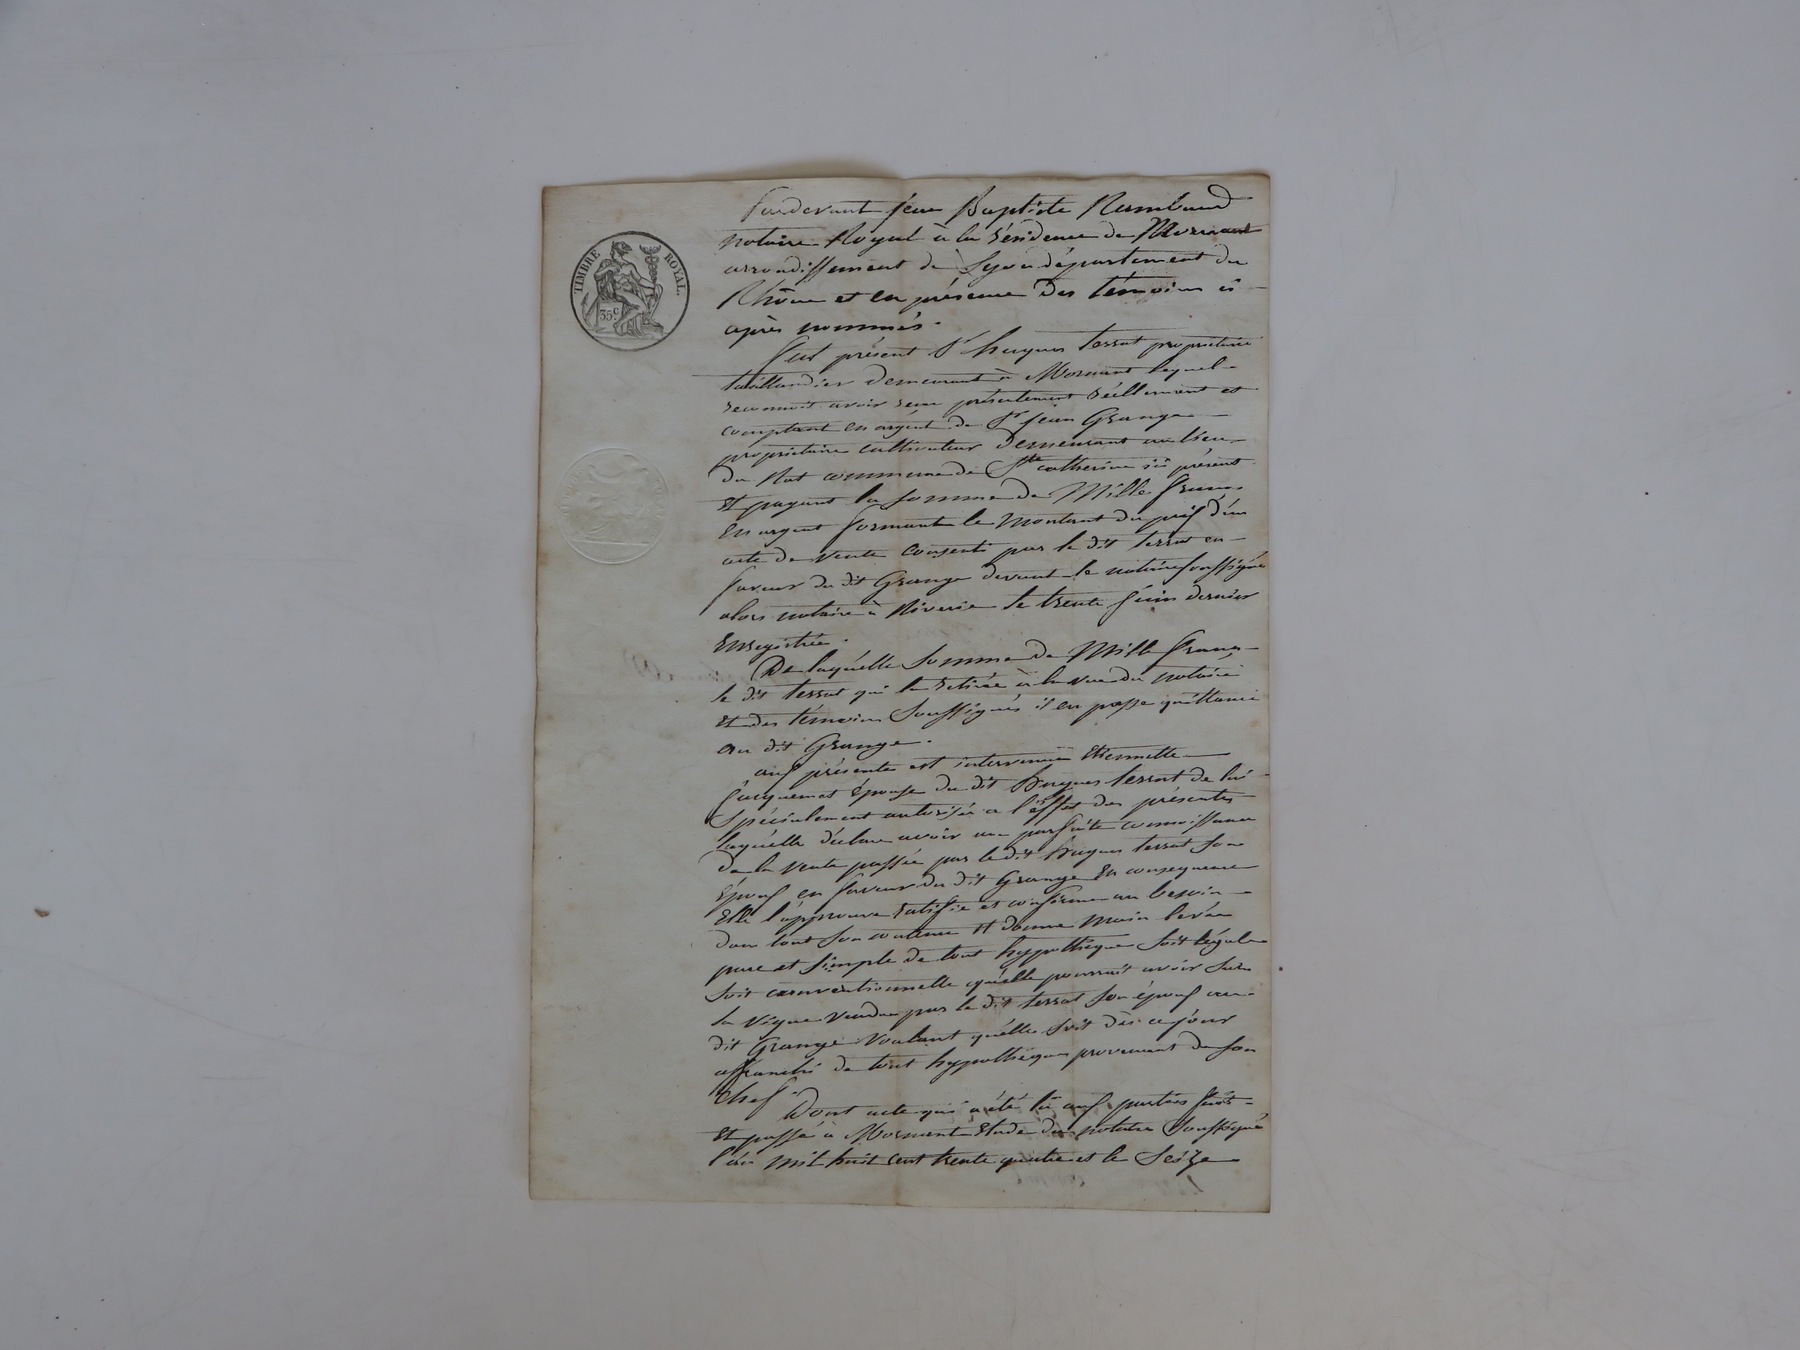 TIMBRE ROYAL.
35 c.
Pardevant Jean Baptiste Rambaud
notaire Royal à la résidence de Mornant
arrondissement de Lyon département du
Rhône et en présence Des témoins ci
après nommés.
fut présent Sr hugues terrat propriétaire
taillandier demeurant à Mornant lequel
reconnoit avoir reçu présentement réellement et
comptant en argent de Sr jean Grange
propriétaire cultivateur demeurant au lieu
du Nat commune de Ste catherine ici présent
et payant la somme de Mille francs
en argent formant le montant du prix d'un
acte de vente consenti par le dit terrat en
faveur du dit Grange devant le notaire soussigné
alors notaire à Riverie le trente juin dernier
Enregistrée.
De laquelle somme de Mille francs
le dit terrat qui la retirée à la vue du notaire
et des témoins soussignés il en passe quittance
au dit Grange.
aux présentes est intervenue Etiennette
jacquemot épouse du dit hugues terrat de lui
spécialement autorisée a l'effet des présentes
laquelle déclare avoir une parfaite connoissance
de la vente passée par le dit hugues terrat son
époux en faveur du dit Grange En consequence
Elle l'approuve ratifie et confirme au besoin
dans tout son contenu et donne main levée
pure et simple de tout hypothèque soit légale
soit conventionnelle qu'elle pourrait avoir sur
la vigne vendue par le dit terrat son époux au
dit Grange voulant qu'elle soit dès ce jour
affranchi de tout hypothèque provenant de son
chef
Dont acte qui a été lu aux parties fait
et passé à Mornant étude du notaire soussigné
l'an mil huit cent trente quatre et le seize